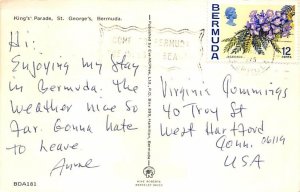 King's Parade, St. George's, Bermuda.
Hi:
Enjoying my stay
in Bermuda. The
weather nice so
far. Gonna hate
to leave
Anne
BDA181
MIKE ROBERTS
BERMUDA
12
CENTS
Virginia Cummings
40 Troy St
West Hartford
Conn. 06119
USA